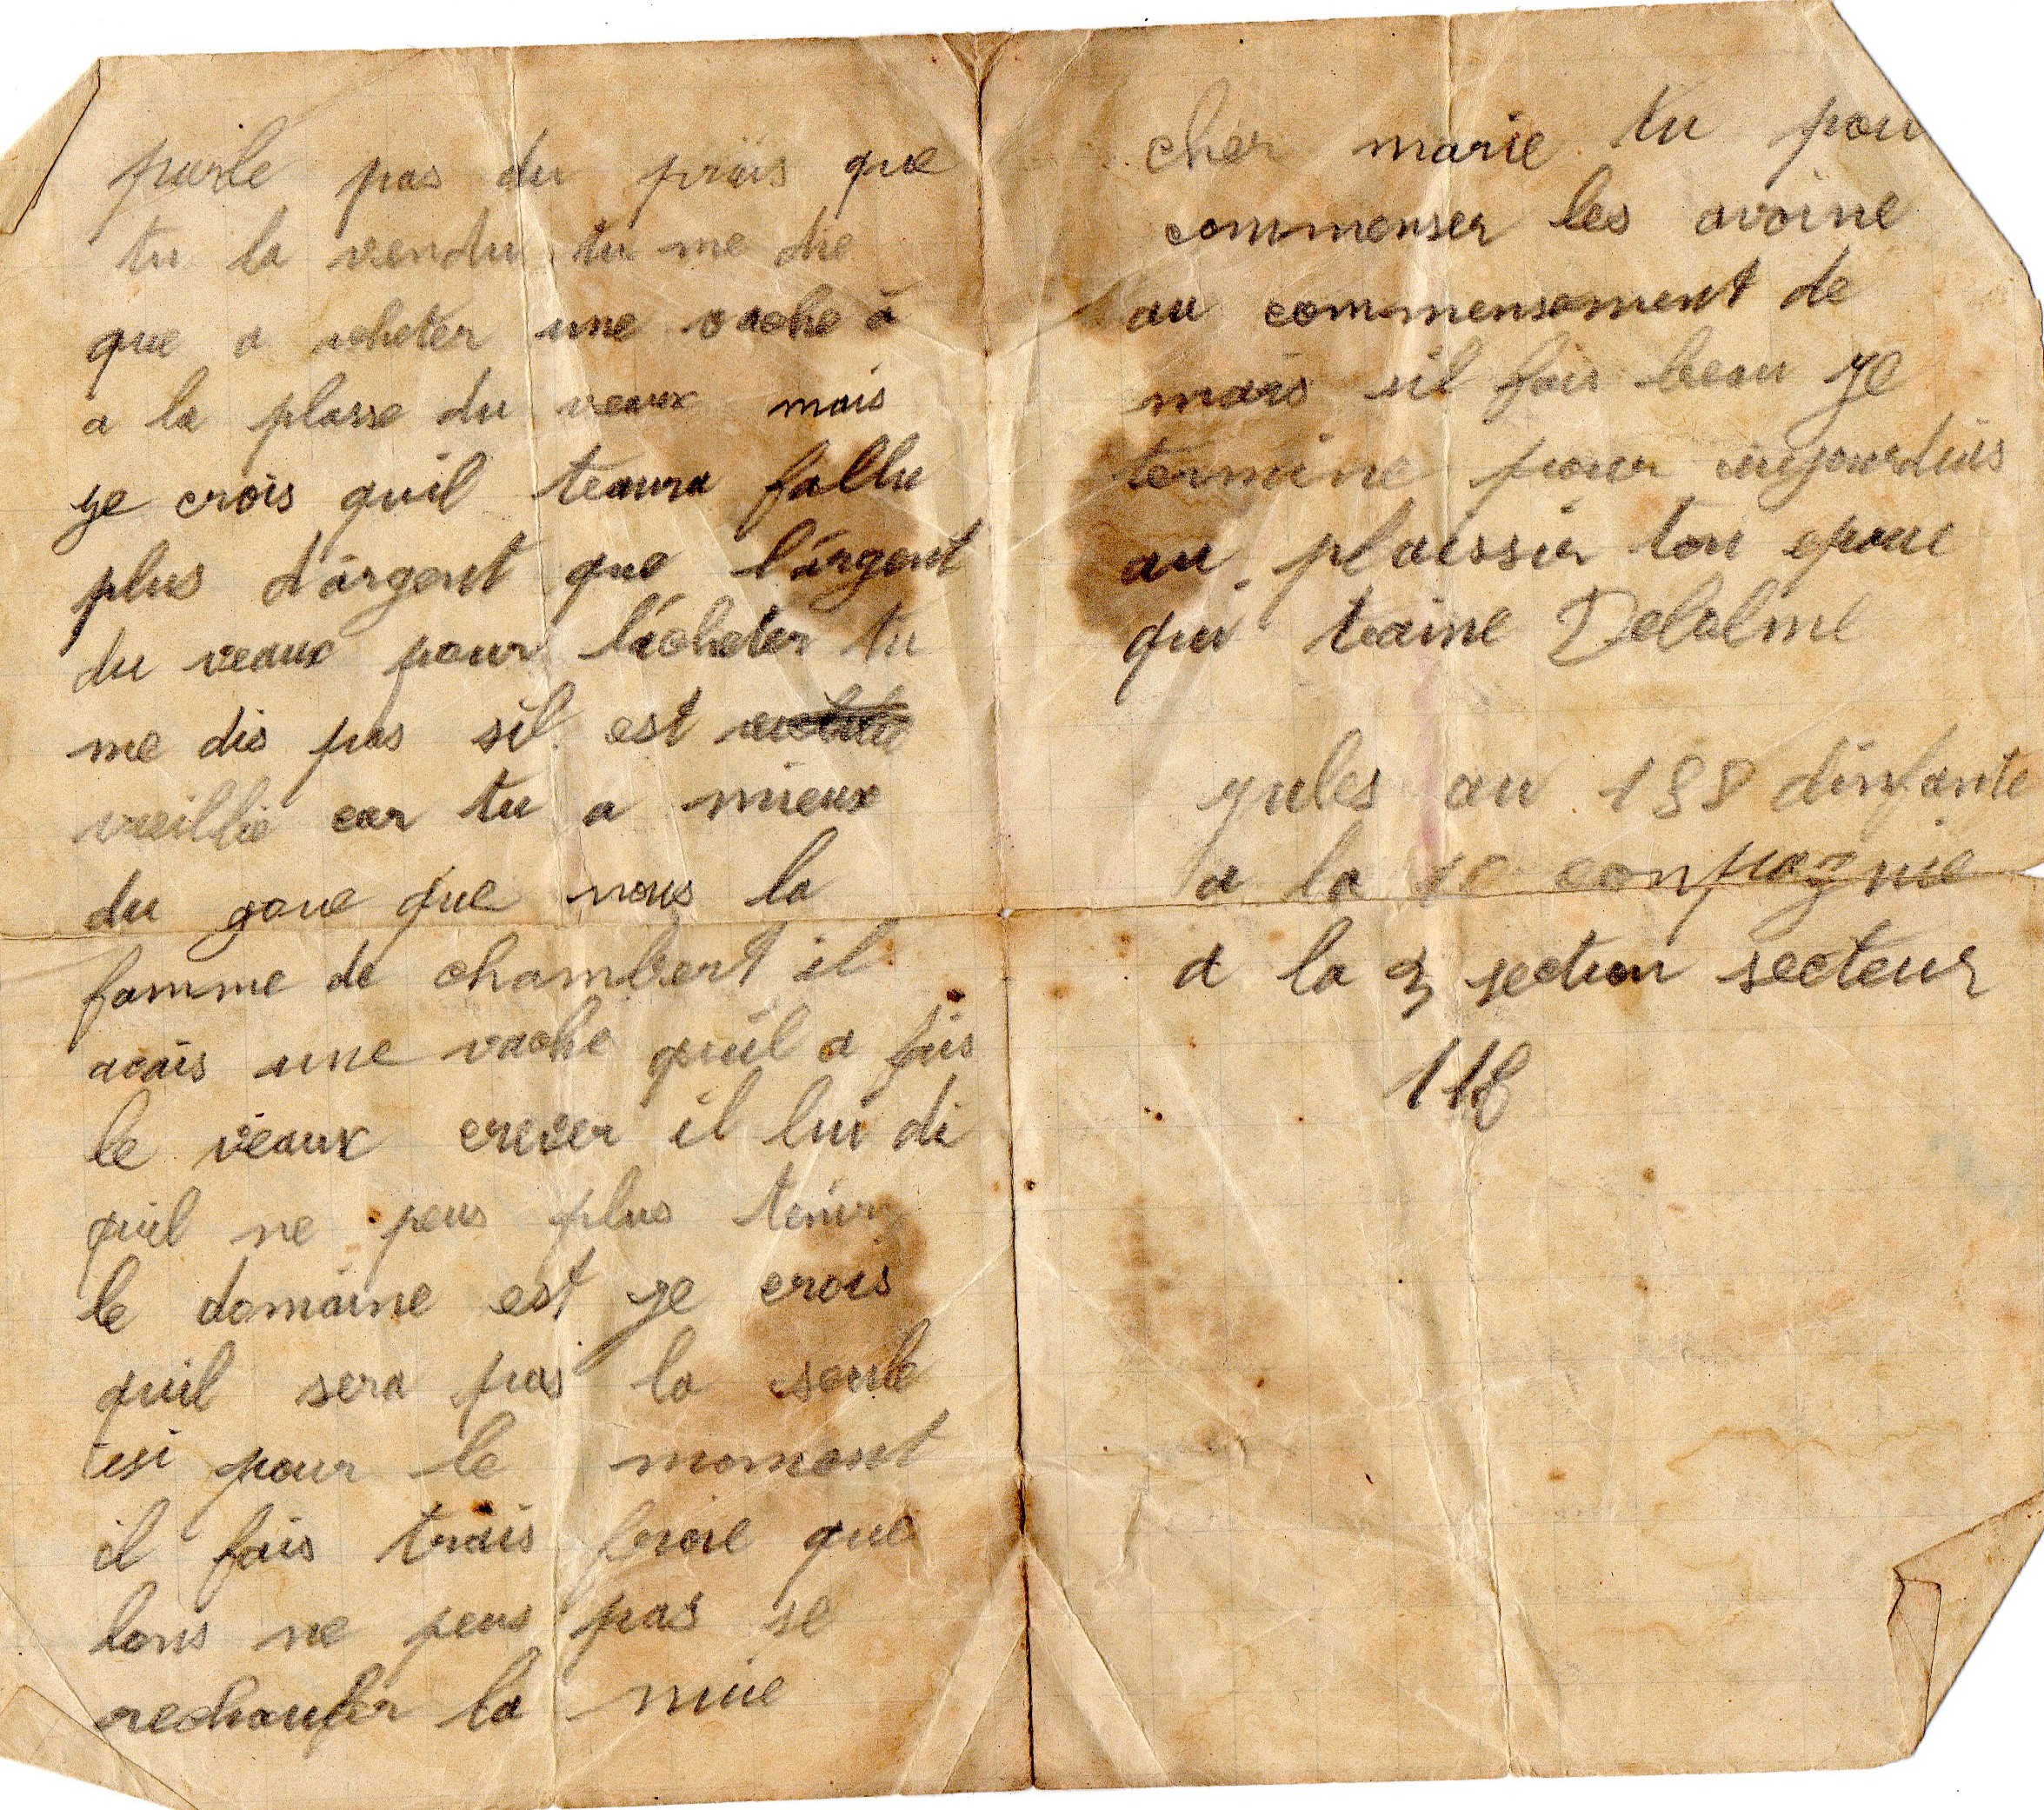 parle pas du priis que
tu la vendu tu me die
que a acheter une vache à
a la plasse du veaux mais
ye crois quil teaura fallu
plus d'argent que l'argent
du veaux pour lacheter tu
me dis pas sil est
vieillie car tu a mieux
du gave que nous la
famme de chambert il
avais une vache quil a fais
le veaux crever il lui di
quil ne peus plus tenir
le domaine est ye crois
quil sera pas la seule
isi pour le momant
il fais trais froie que
lons ne peus pas se
rechaufer la nuie
cher marie tu pou
commenser les avoine
au commensament de
mars sil fais beau ye
termine pour aujourduis
au plaissir ton epoue
qui taime Delolme
yules au 158 dinfante
a la 10 conpagnie
a la 3 section secteur
118